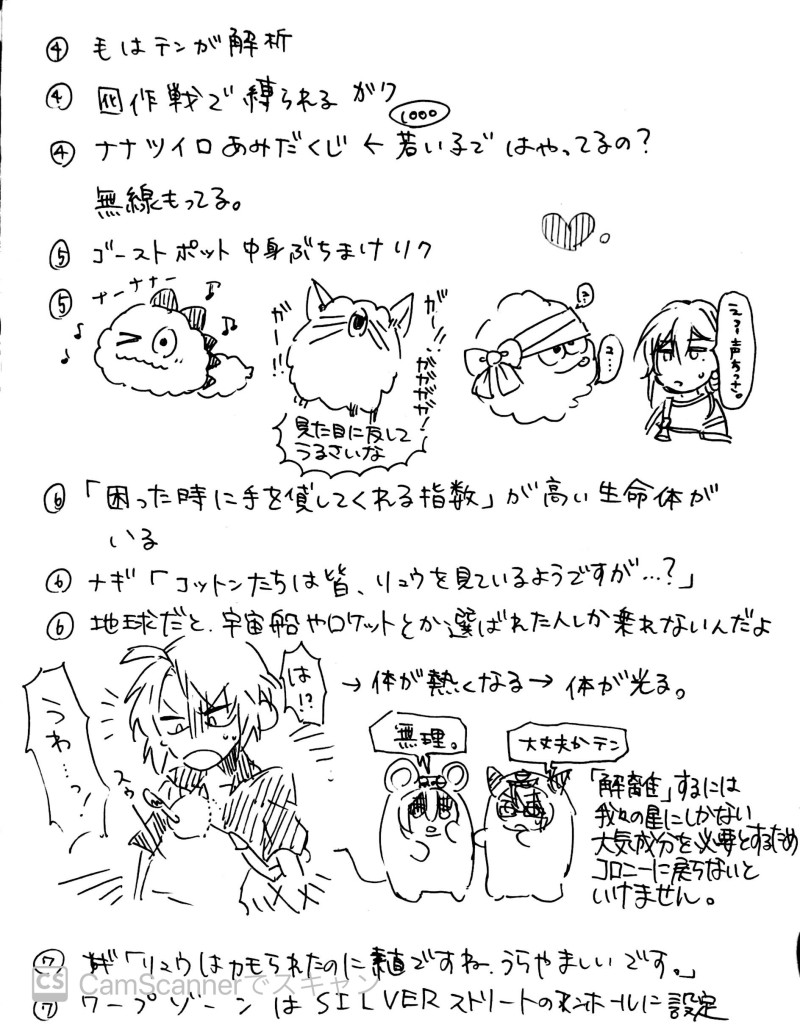 ④ 毛はテンが解析
④ 囮作戦で縛られる ガク
1000
④ ナナツイロあみだくじ ← 若い子で はやってるの?
無線もってる。
⑤ ゴーストポット 中身ぶちまけリク
⑤ ナーナナー
ガー!!
ガー!!
ガガガガ!
見た目に反して
うるさいな
?
2…
え?声ちっさ。
⑥ 「困った時に手を貸してくれる指数」が高い生命体が
いる
⑥ ナギ「コットンたちは皆、リュウを見ているようですが…?」
⑥ 地球だと、宇宙船やロケットとか選ばれた人しか乗れないんだよ
は!?
うわ…っ
スゥ
→体が熱くなる→ 体が光る。
無理。
大丈夫かテン
「解離」するには
我々の星にしかない
大気成分を必要とするため
コロニーに戻らないと
いけません。
⑦ ナギ「リュウはカモられたのに素直ですね、うらやましいです。」
CS CamScannerでスキャン
⑦ ワープゾーン は SILVERストリートのマンホールに設定